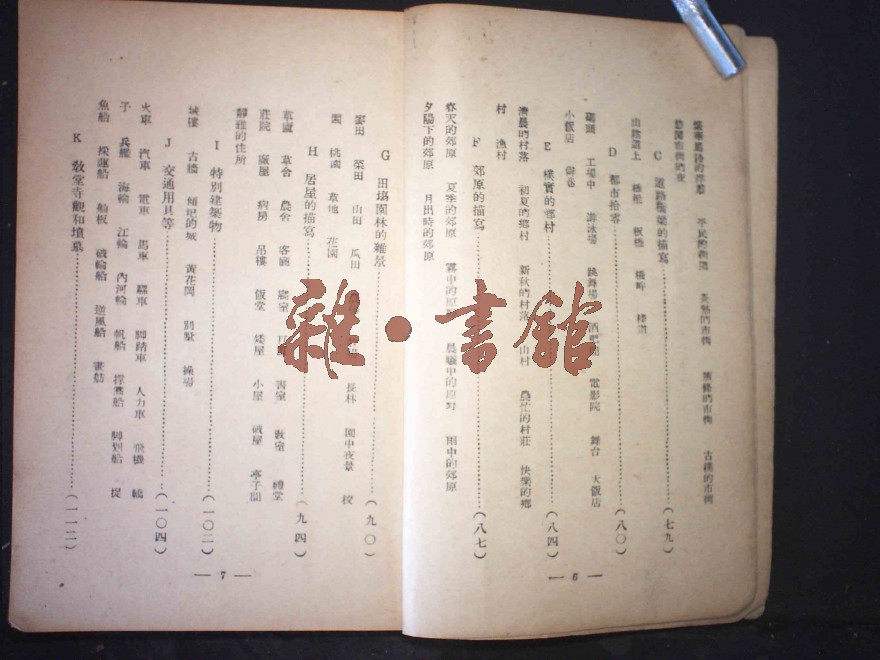 平民的街道 古樸的市街
C 道路橋樑的描寫……(七九)
板橋
D 都市拾零……(八〇)
工場中 游泳場 跳舞場 電影院 舞台 大飯店
小飯店
E 樸實的鄉村……(八四)
清晨的村落 初夏的鄉村 新秋的村落 山村 農忙的村莊 快樂的鄉
村 漁村
F 郊原的描寫……(八七)
春天的郊原 夏季的郊原 霧中的原 雨中的郊原
夕陽下的郊原 月出時的郊原
— 6 —
G 田塢園林的雜景……(九〇)
麥田 菜田 山田 瓜田 長林 園中夜景 校
園 桃園 草地 花園
H 居屋的描寫……(九四)
草廬 草舍 農舍 客廳 寢室 書室 教室 禮堂
莊院 廠屋 病房 吊樓 飯堂 矮屋 小屋 破屋 亭子間
靜雅的住所
I 特別建築物……(一〇二)
城樓 古牆 傾圯的城 黃花岡 別墅 操場
J 交通用具等……(一〇四)
火車 汽車 電車 馬車 騾車 脚踏車 人力車 飛機 轎
子 兵艦 海輪 江輪 內河輪 帆船 撑篙船 脚划船 提
魚船 採蓮船 舢板 破輪船 逆風船 畫舫
K 敎堂寺觀和墳墓……(一一二)
— 7 —
雜·書館